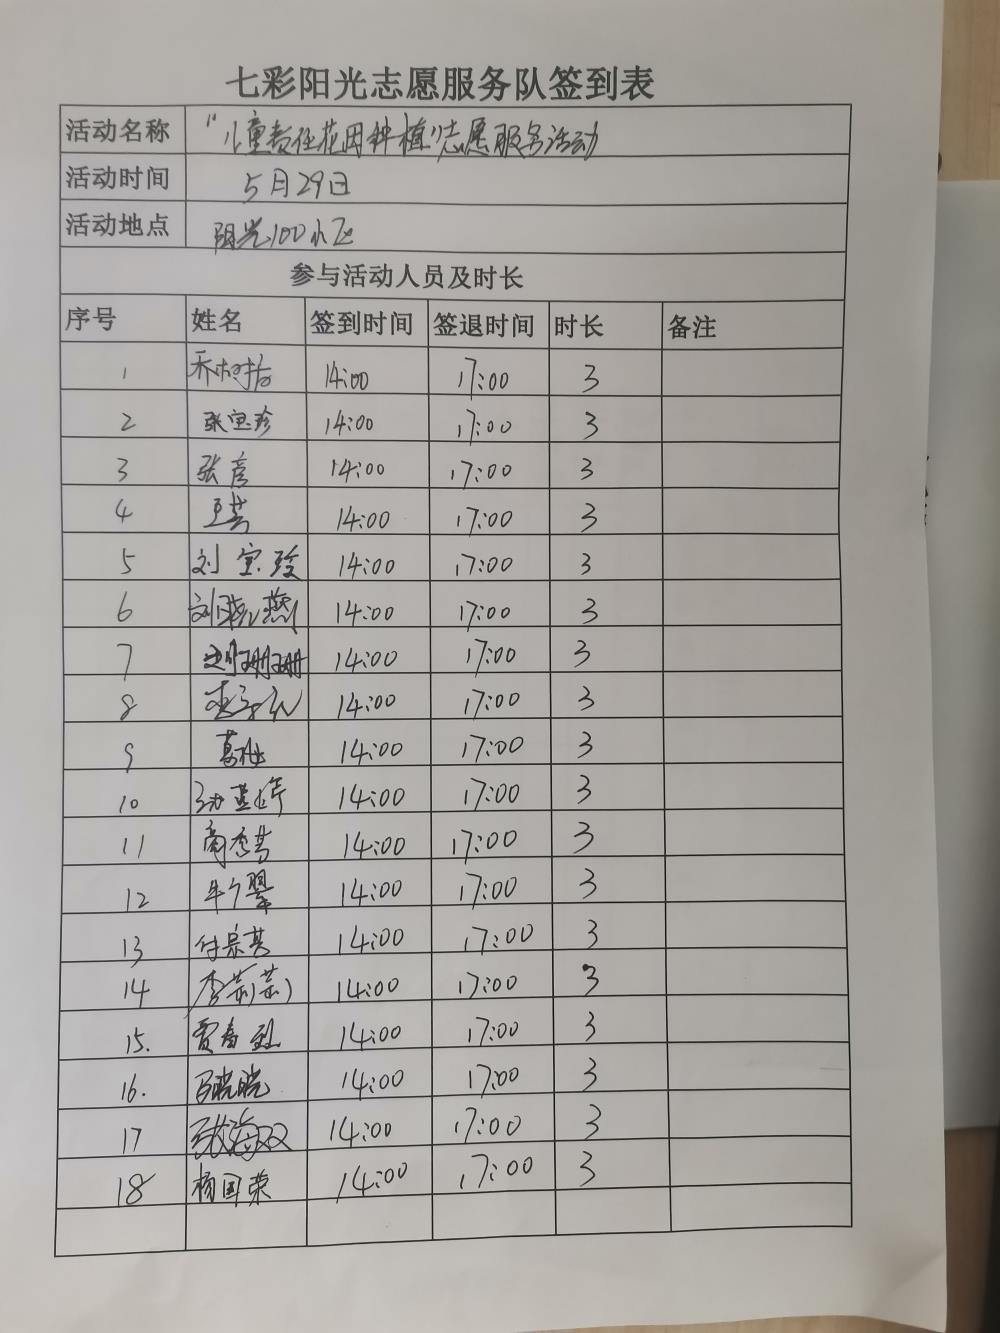 七彩阳光志愿服务队签到表
活动名称 "儿童责任花园种植"志愿服务活动
活动时间 5月29日
活动地点 阳光100小区
参与活动人员及时长
序号 姓名 签到时间 签退时间 时长 备注
1 14:00 17:00 3
2 张宝珍 14:00 17:00 3
3 张彦 14:00 17:00 3
4 王芸 14:00 17:00 3
5 刘宝玲 14:00 17:00 3
6 刘晓燕 14:00 17:00 3
7 刘珊珊 14:00 17:00 3
8 14:00 17:00 3
9 葛梅 14:00 17:00 3
10 14:00 17:00 3
11 商秀芳 14:00 17:00 3
12 14:00 17:00 3
13 付宗其 14:00 17:00 3
14 李莉莉 14:00 17:00 3
15. 贾春烈 14:00 17:00 3
16. 马晓晓 14:00 17:00 3
17 张海双 14:00 17:00 3
18 杨国荣 14:00 17:00 3